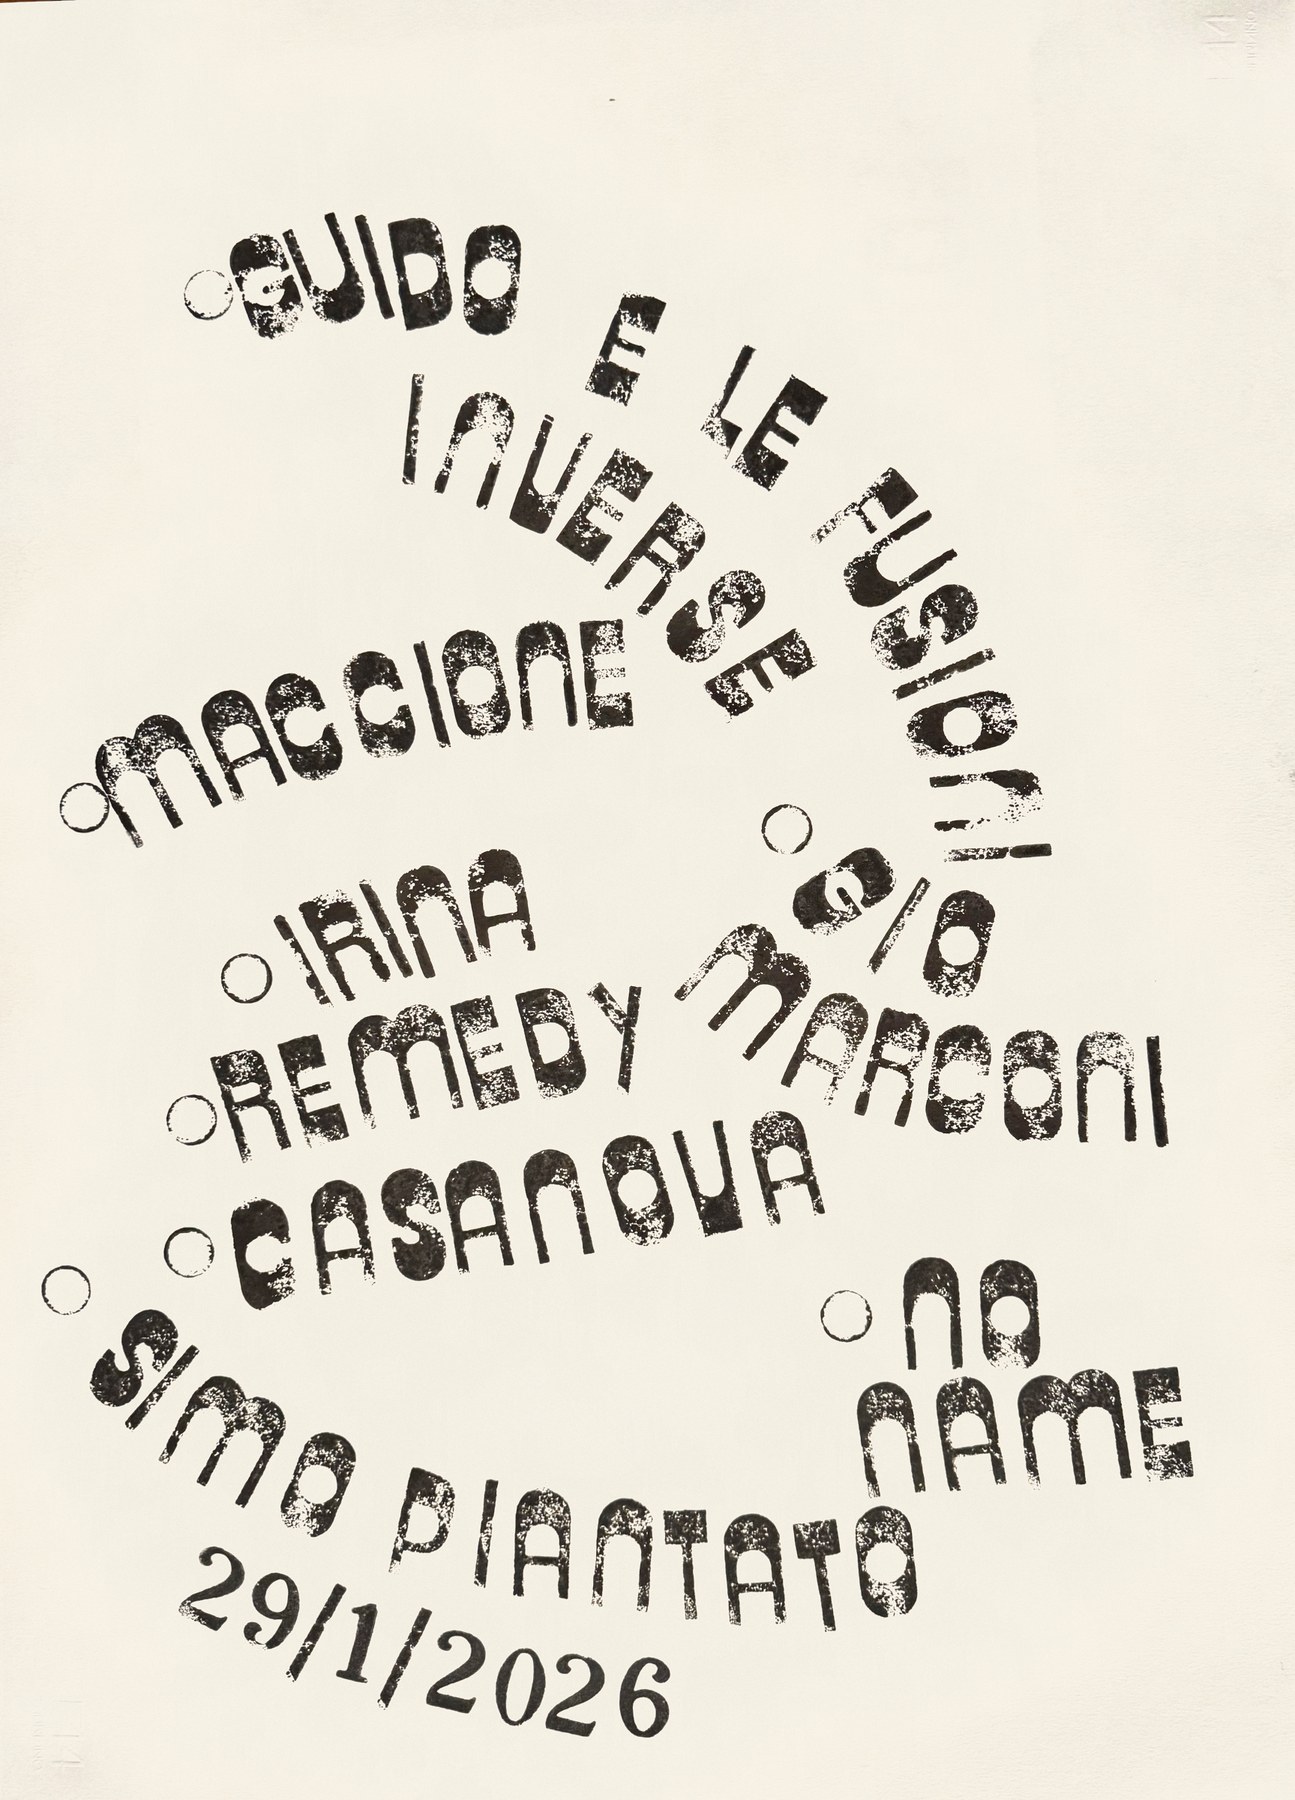 GUIDO E LE FUSIONI
INVERSE
MACCIONE
GIO
MARCONI
IRINA
REMEDY
CASANOVA
NO
NAME
SIMO PIANTATO
29/1/2026